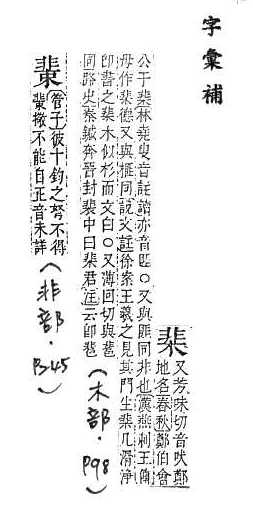 字彙補
棐 又芳味切音吠鄭
地名春秋鄭伯會
公于棐林堯叟音註讀亦音匪○又與匪同非也漢燕刺王傳
毋作棐德又與榧同說文註徐案王羲之見其門生棐几滑淨
即書之棐木似杉而文白○又薄回切與裴
同路史蔡鉞奔晉封裴中曰棐君注云卽裴
（木部．P98）
管子彼十鈞之弩不得
棐檠不能自正音未詳
（非部．P.45）